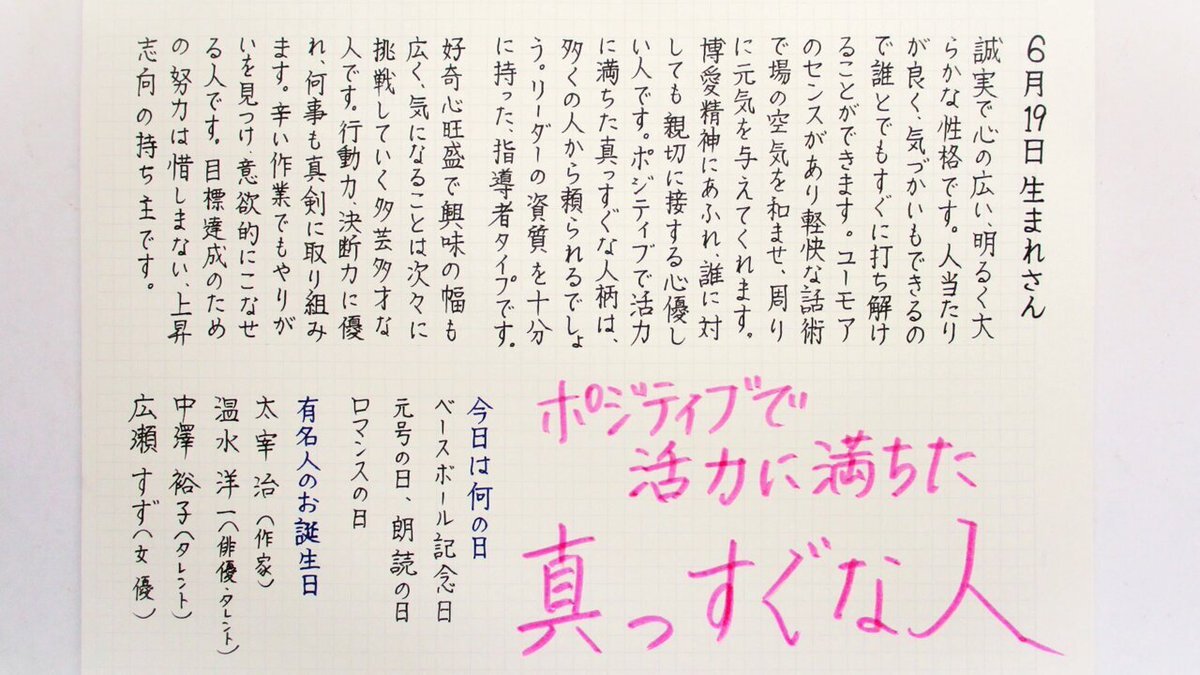 6月19日生まれさん
誠実で心の広い、明るく大
らかな性格です。人当たり
が良く、気づかいもできるの
で誰とでもすぐに打ち解け
ることができます。ユーモア
のセンスがあり軽快な話術
で場の空気を和ませ、周り
に元気を与えてくれます。
博愛精神にあふれ、誰に対
しても親切に接する心優し
い人です。ポジティブで活力
に満ちた真っすぐな人柄は、
多くの人から頼られるでしょ
う。リーダーの資質を十分
に持った、指導者タイプです。
好奇心旺盛で興味の幅も
広く、気になることは次々に
挑戦していく多芸多才な
人です。行動力、決断力に優
れ、何事も真剣に取り組み
ます。辛い作業でもやりが
いを見つけ、意欲的にこなせ
る人です。目標達成のため
の努力は惜しまない、上昇
志向の持ち主です。
ポジティブで
活力に満ちた
真っすぐな人
今日は何の日
ベースボール記念日
元号の日、朗読の日
ロマンスの日
有名人のお誕生日
太宰治（作家）
温水洋一（俳優・タレント）
中澤裕子（タレント）
広瀬すず（女優）